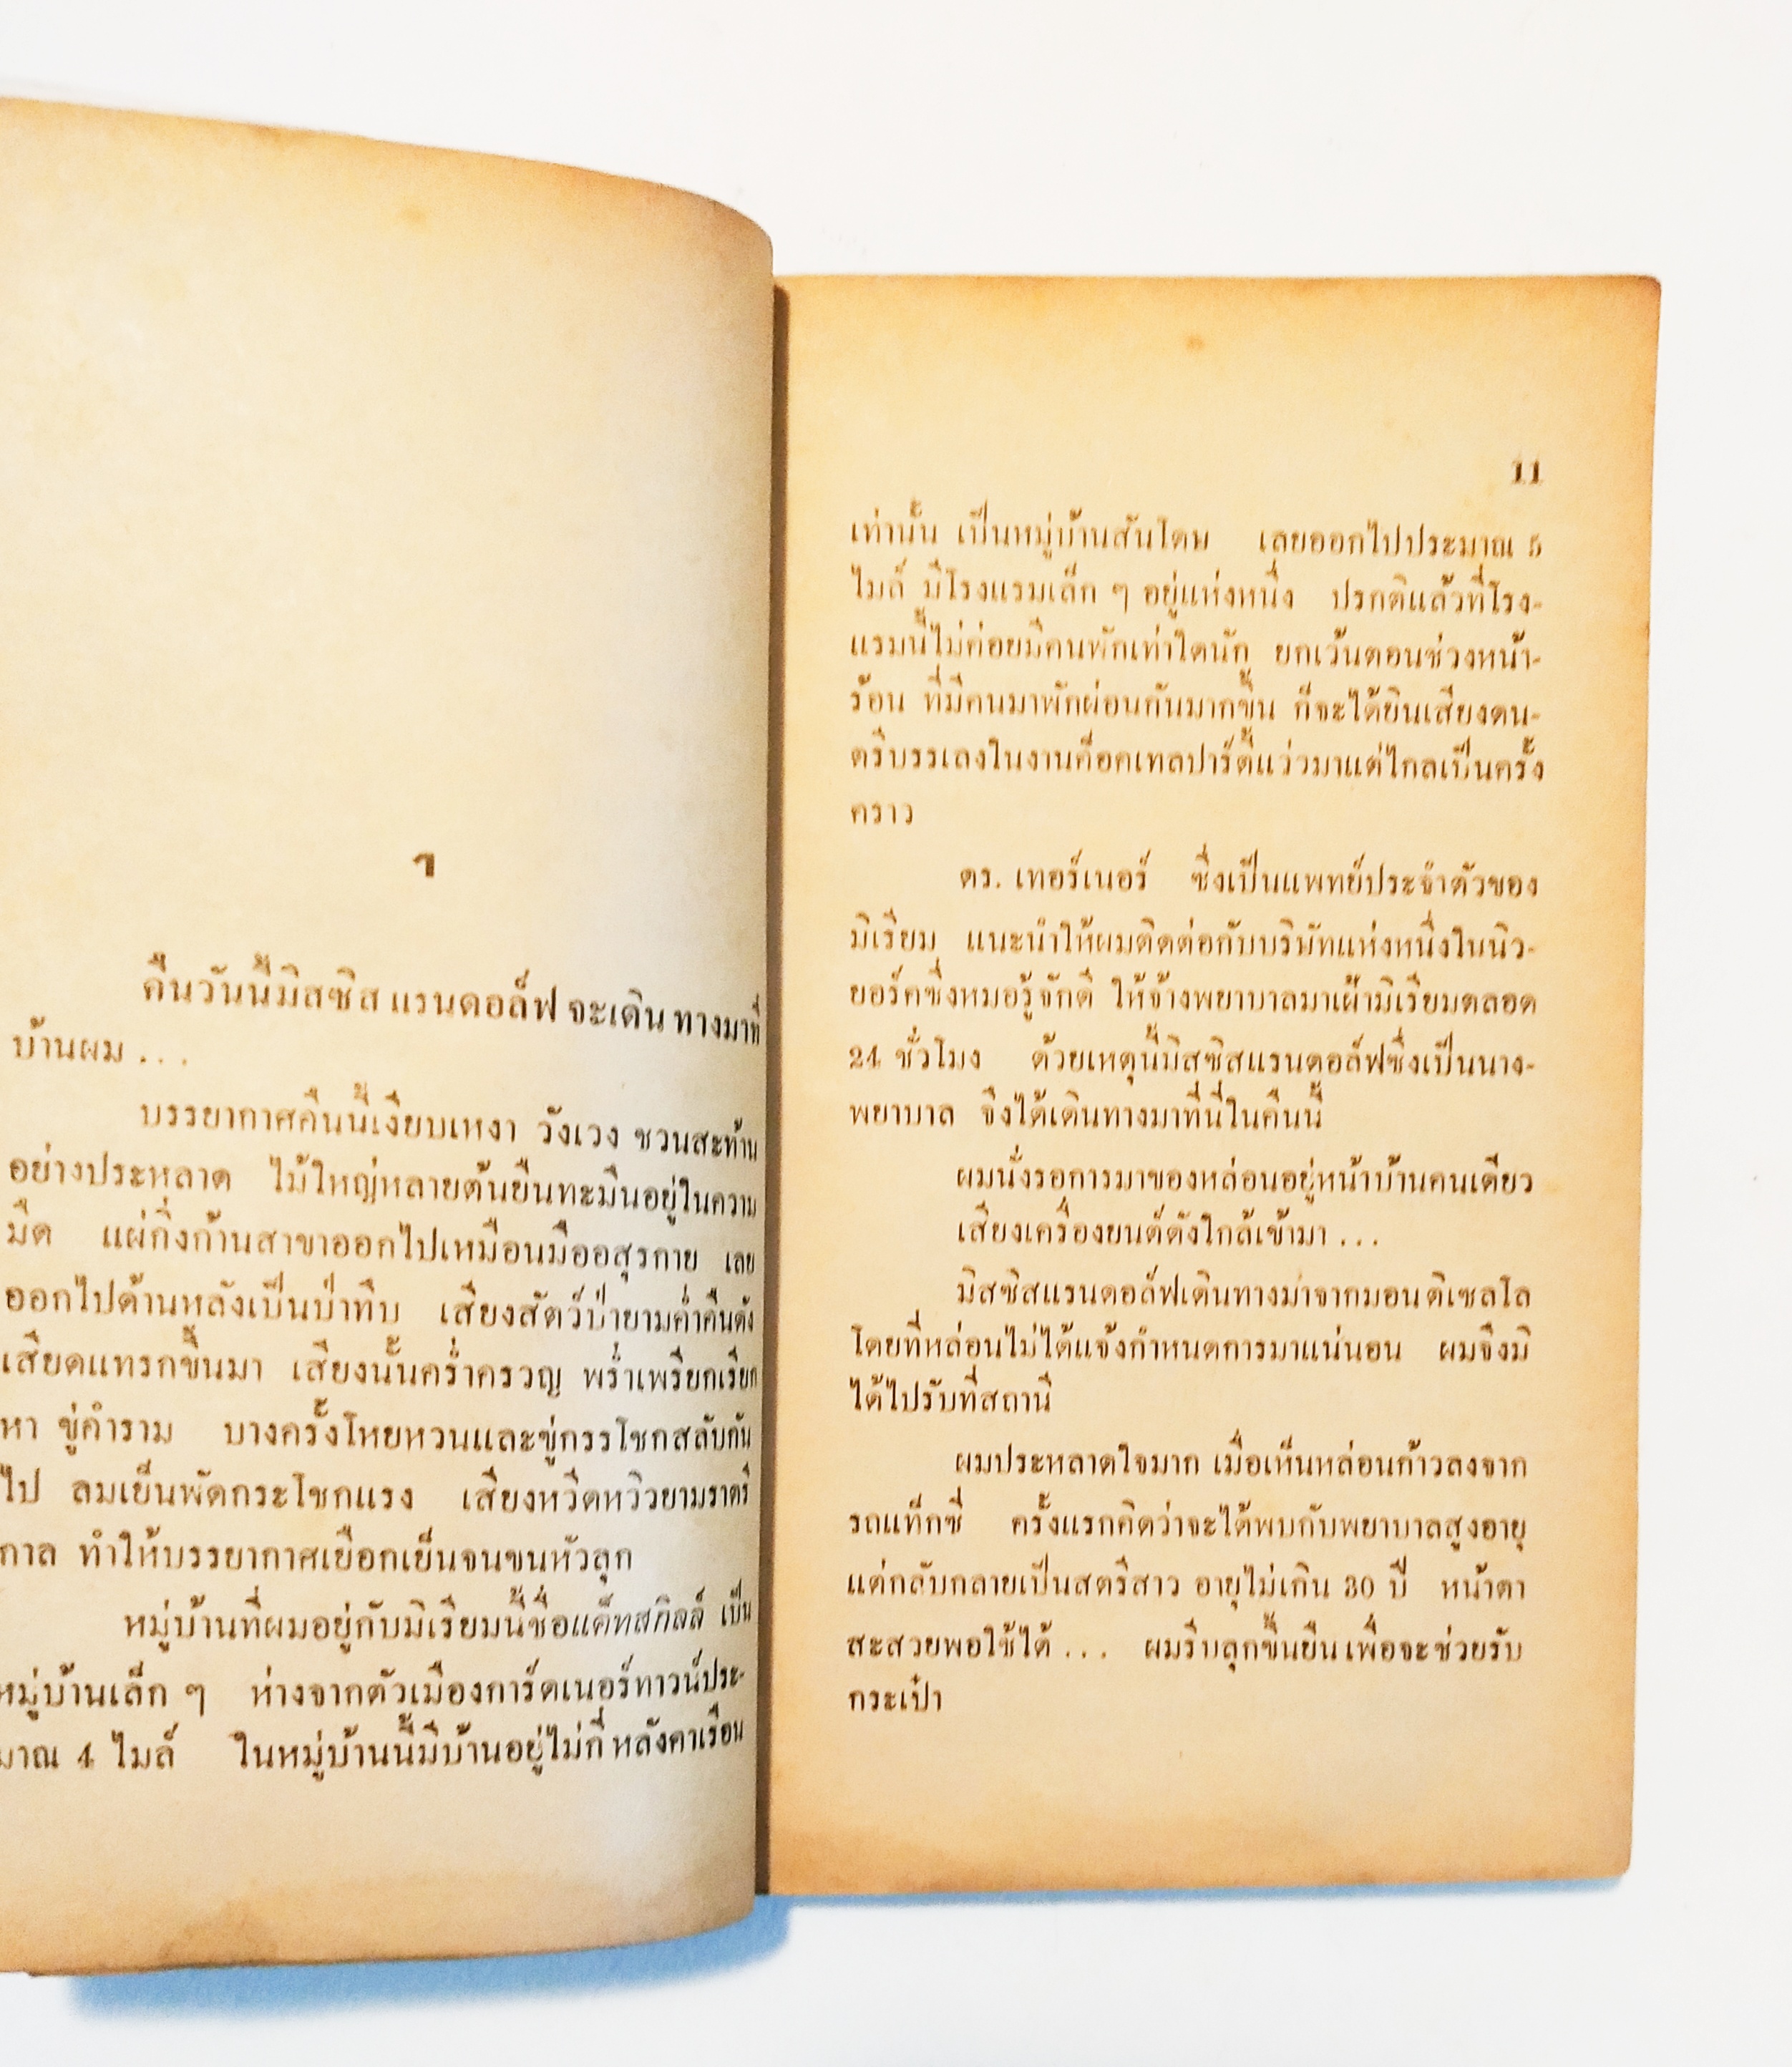 ๑
คืนวันนี้มิสซิส แรนดอล์ฟ จะเดิน ทางมาที่
บ้านผม . . .
บรรยากาศคืนนี้เงียบเหงา วังเวง ชวนสะท้าน
อย่างประหลาด ไม้ใหญ่หลายต้นยืนทะมึนอยู่ในความ
มืด แผ่กิ่งก้านสาขาออกไปเหมือนมืออสุรกาย เลย
ออกไปด้านหลังเป็นป่าทึบ เสียงสัตว์ป่ายามค่ำคืนดัง
เสียดแทรกขึ้นมา เสียงนั้นคร่ำครวญ พร่ำเพรียกเรียก
หา ขู่คำราม บางครั้งโหยหวนและขู่กรรโชกสลับกัน
ไป ลมเย็นพัดกระโชกแรง เสียงหวีดหวิวยามราตรี
กาล ทำให้บรรยากาศเยือกเย็นจนขนหัวลุก
หมู่บ้านที่ผมอยู่กับมิเรียมนี้ชื่อแค็ทสกิลล์ เป็น
หมู่บ้านเล็ก ๆ ห่างจากตัวเมืองการ์ดเนอร์ทาวน์ประ-
มาณ 4 ไมล์ ในหมู่บ้านนี้มีบ้านอยู่ไม่กี่ หลังคาเรือน
11
เท่านั้น เป็นหมู่บ้านสันโดษ เลยออกไปประมาณ 5
ไมล์ มีโรงแรมเล็ก ๆ อยู่แห่งหนึ่ง ปรกติแล้วที่โรง-
แรมนี้ไม่ค่อยมีคนพักเท่าใดนัก ยกเว้นตอนช่วงหน้า-
ร้อน ที่มีคนมาพักผ่อนกันมากขึ้น ก็จะได้ยินเสียงดน-
ตรีบรรเลงในงานค็อคเทลปาร์ตี้แว่วมาแต่ไกลเป็นครั้ง
คราว
ดร. เทอร์เนอร์ ซึ่งเป็นแพทย์ประจำตัวของ
มิเรียม แนะนำให้ผมติดต่อกับบริษัทแห่งหนึ่งในนิว-
ยอร์คซึ่งหมอรู้จักดี ให้จ้างพยาบาลมาเฝ้ามิเรียมตลอด
24 ชั่วโมง ด้วยเหตุนี้มิสซิสแรนดอล์ฟซึ่งเป็นนาง-
พยาบาล จึงได้เดินทางมาที่นี่ในคืนนี้
ผมนั่งรอการมาของหล่อนอยู่หน้าบ้านคนเดียว
เสียงเครื่องยนต์ดังใกล้เข้ามา . . .
มิสซิสแรนดอล์ฟเดินทางมาจากมอนติเซลโล
โดยที่หล่อนไม่ได้แจ้งกำหนดการมาแน่นอน ผมจึงมิ
ได้ไปรับที่สถานี
ผมประหลาดใจมาก เมื่อเห็นหล่อนก้าวลงจาก
รถแท็กซี่ ครั้งแรกคิดว่าจะได้พบกับพยาบาลสูงอายุ
แต่กลับกลายเป็นสตรีสาว อายุไม่เกิน 30 ปี หน้าตา
สะสวยพอใช้ได้ . . . ผมรีบลุกขึ้นยืน เพื่อจะช่วยรับ
กระเป๋า